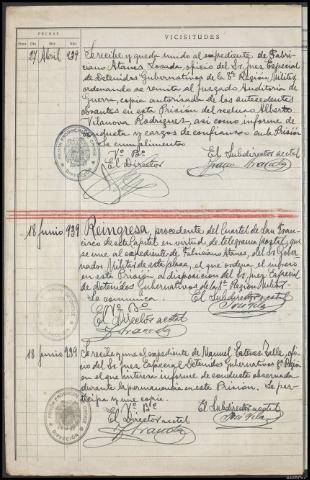 FECHAS
VICISITUDES
Día Mes Año
27 Abril 939
Se recibe y queda unido al expediente de Fabri-
ciano Atanes Losada, oficio del Sr. Juez Especial
de Detenidos Gubernativos de la 8ª Región Militar
ordenando se remita al Juzgado Auditoría de
Guerra, copia autorizada de los antecedentes
obrantes en esta Prisión del recluso Alberto
Vilanova Rodriguez, así como informe de
conducta y cargos de confianza en la Prisión
cumplimento
Vº Bº
El Director
El Subdirector acctal
18 Junio 939
Reingresa, procedente del Cuartel de San Fran-
cisco de esta capital en virtud de telegrama postal, que
se une al expediente de Atanes, del Sr. Gober-
nador Militar de esta plaza, el que ordena el ingreso
en esta Prisión a disposición del Sr. Juez Especial
de Detenidos Gubernativos de la 8ª Región Militar
Se comunica.
Vº Bº
El Director acctal
El Subdirector acctal
18 Junio 939
Se recibe y une al expediente de Manuel, oficio
del Sr. Juez Especial de Detenidos Gubernativos 8ª Región
en el que interesa informe de conducta observada
durante la permanencia en esta Prisión. Se par-
ticipa y une copia.
Vº Bº
El Director acctal
El Subdirector acctal
José Vila